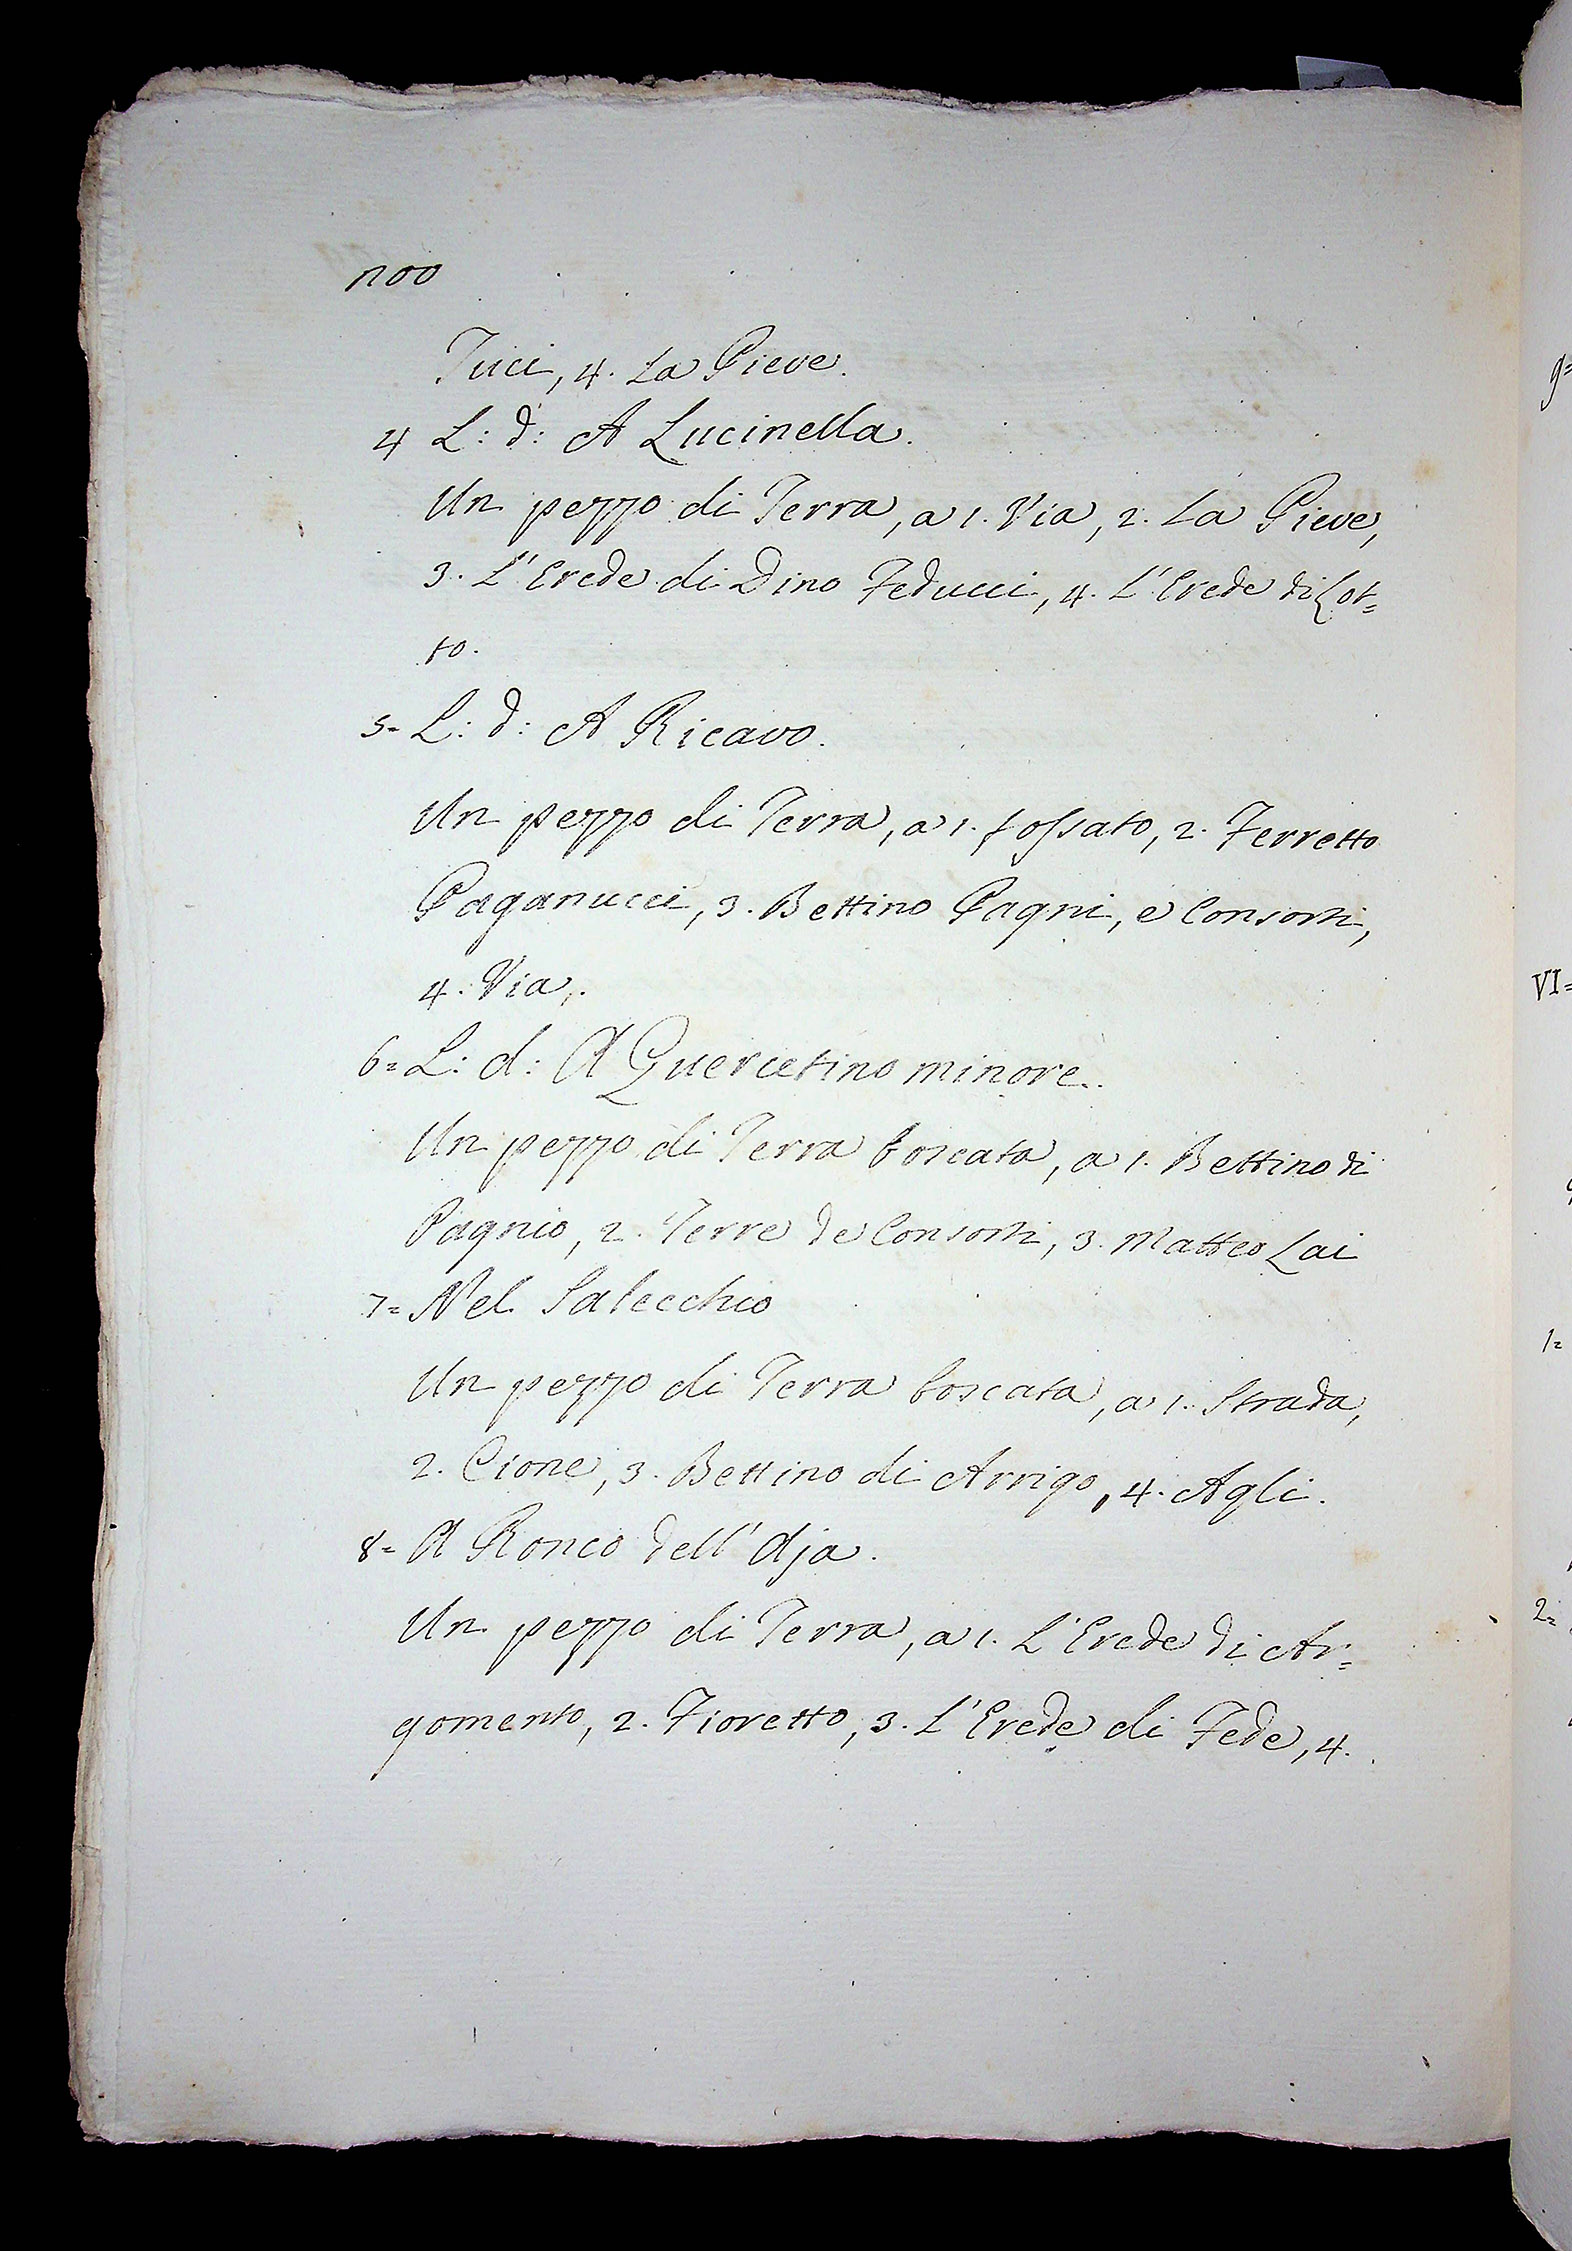 100
Tuci, 4. La Pieve.
4 L: d: A Lucinella.
Un pezzo di Terra, a 1. Via, 2. La Pieve,
3. L'Erede di Dino Feducci, 4. L'Erede di Lot=
to.
5= L: d: A Ricavo.
Un pezzo di Terra, a 1. fossato, 2. Ferretto
Paganucci, 3. Bettino Pagni, e Consorti,
4. Via.
6= L: d: A Quercetino minore.
Un pezzo di Terra boscata, a 1. Bettino di
Pagnio, 2. Terre de Consorti, 3. Matteo Lai
7= Nel Salecchio
Un pezzo di Terra boscata, a 1. Strada,
2. Cione, 3. Bettino di Arrigo, 4. Agli.
8= A Ronco dell'Aja.
Un pezzo di Terra, a 1. L'Erede di Ar=
gomento, 2. Fioretto, 3. L'Erede di Fede, 4.
9=
VI=
1=
2=